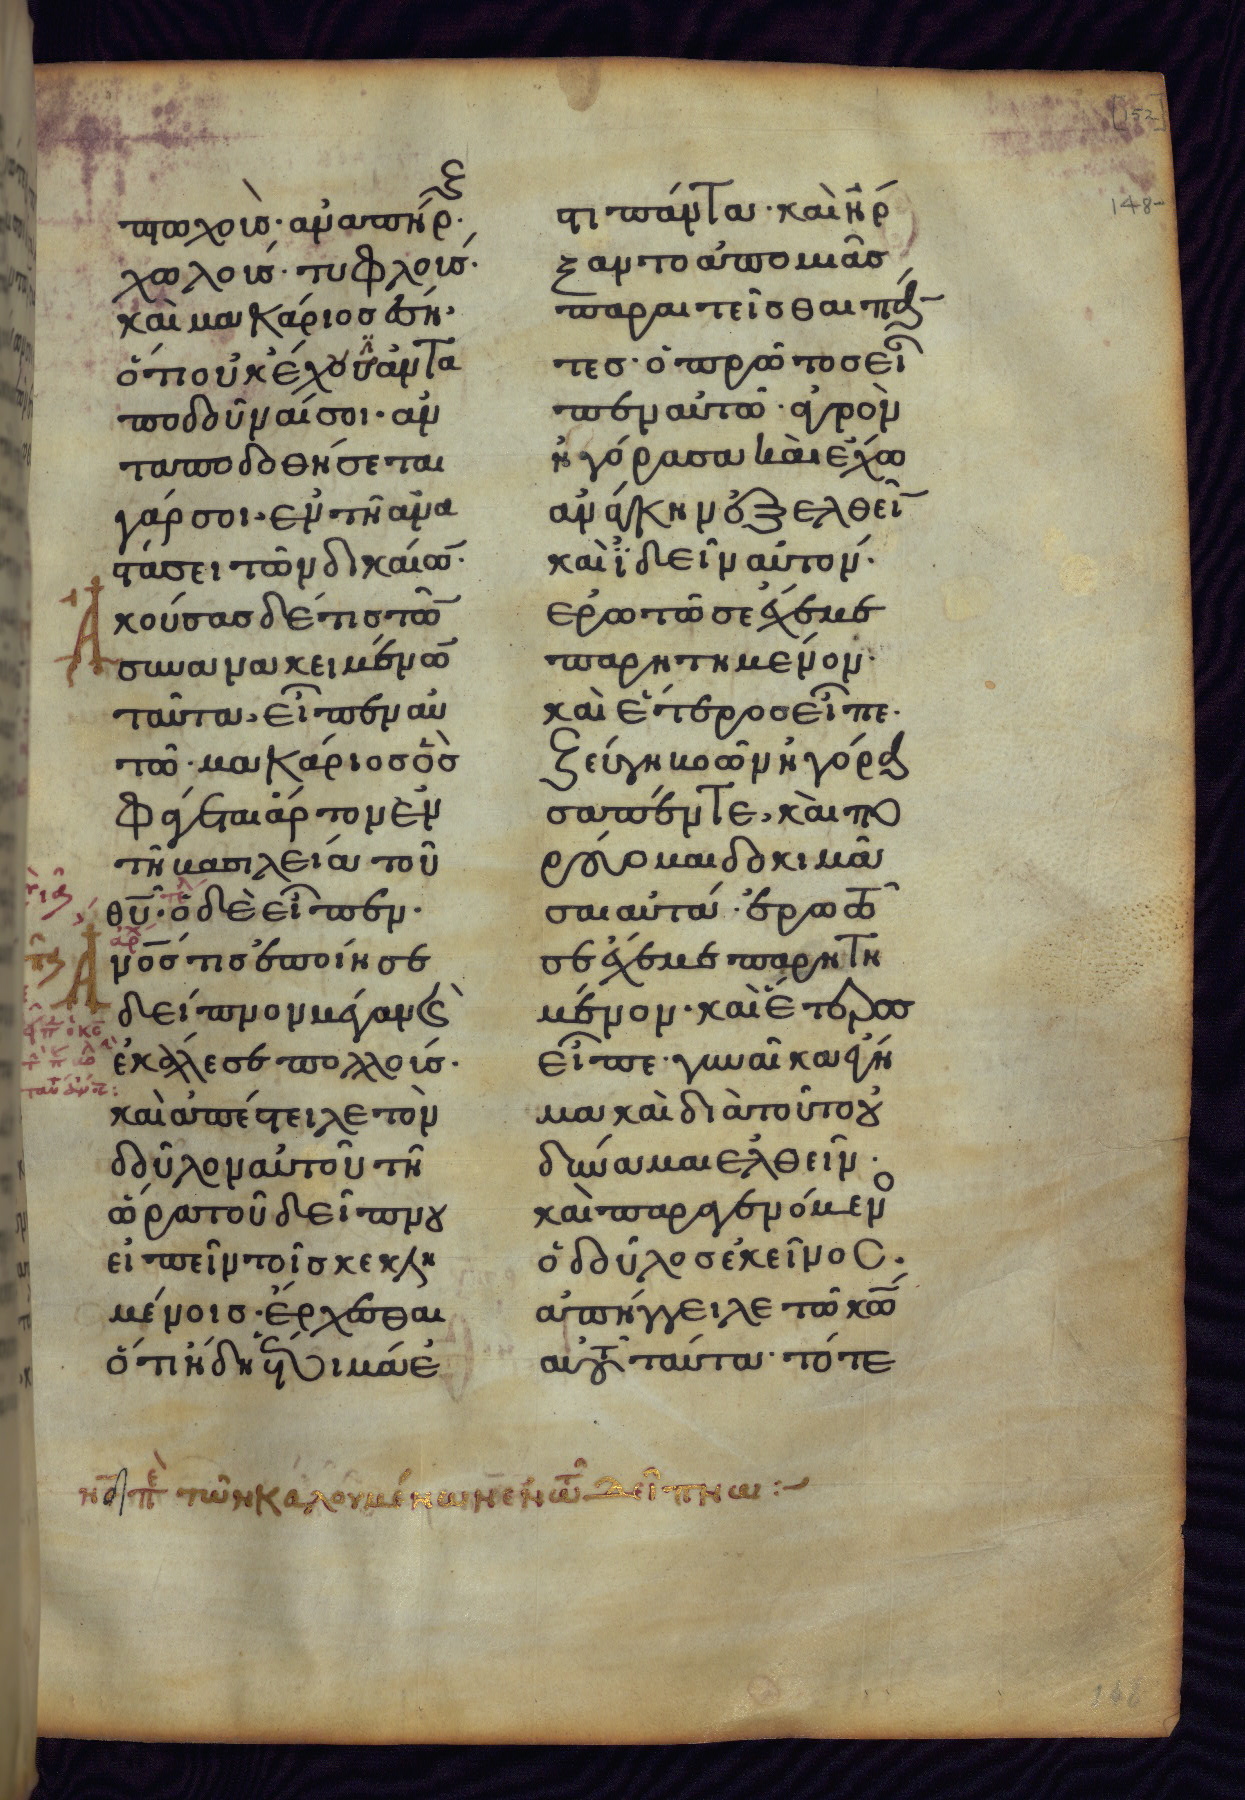 [152]
148
ξ
πτωχοὺς· ἀναπήρ·
χωλούς· τυφλούς·
καὶ μακάριος ἔση·
ὅτι οὐκ ἔχουσιν ἀντα
ποδοῦναί σοι· ἀν
ταποδοθήσεται
γάρ σοι· ἐν τῇ ἀνα
στάσει τῶν δικαίω̅·
Ἀκούσας δέ τις τῶ̅
συνανακειμένω̅
ταῦτα, εἶπεν αὐ
τῷ· μακάριος ὃς
φάγεται ἄρτον ἐν
τῇ βασιλείᾳ τοῦ
θῡ· ὁ δὲ εἶπεν·
Ἀνο̅ς τις ἐποίησε
δεῖπνον μέγαν καὶ
ἐκάλεσε πολλούς·
καὶ ἀπέστειλε τὸν
δοῦλον αὐτοῦ τῇ
ὥρα τοῦ δείπνου
εἰπεῖν τοῖς κεκλη
μένοις· ἔρχεσθαι
ὅτι ἤδη ἕτοιμά ἐ
στι πάντα· καὶ ἤρ
ξαντο ἀπὸ μιᾶς
παραιτεῖσθαι πάν
τες· ὁ πρῶτος εἶ
πεν αὐτῷ· ἀγρὸν
ἠγόρασα καὶ ἔχω
ἀνάγκην ἐξελθεῖ̅
καὶ ἰδεῖν αὐτόν·
ἐρωτῶ σε ἔχε με
παρῃτημένον·
καὶ ἕτερος εἶπε·
ζεύγη βοῶν ἠγόρα
σα πέντε, καὶ πο
ρεύομαι δοκιμά
σαι αὐτά· ἐρωτῶ
σε ἔχε με παρῃτη
μένον· καὶ ἕτερος
εἶπε· γυναῖκα ἔγη
μα καὶ διὰ τοῦτο οὐ
δύναμαι ἐλθεῖν·
καὶ παραγενόμενο
ὁ δοῦλος ἐκεῖνος·
ἀπήγγειλε τῷ κω̅
αὐτοῦ ταῦτα· τότε
πὲ τῶν καλουμένων ἐν τῷ δείπνω :~
148